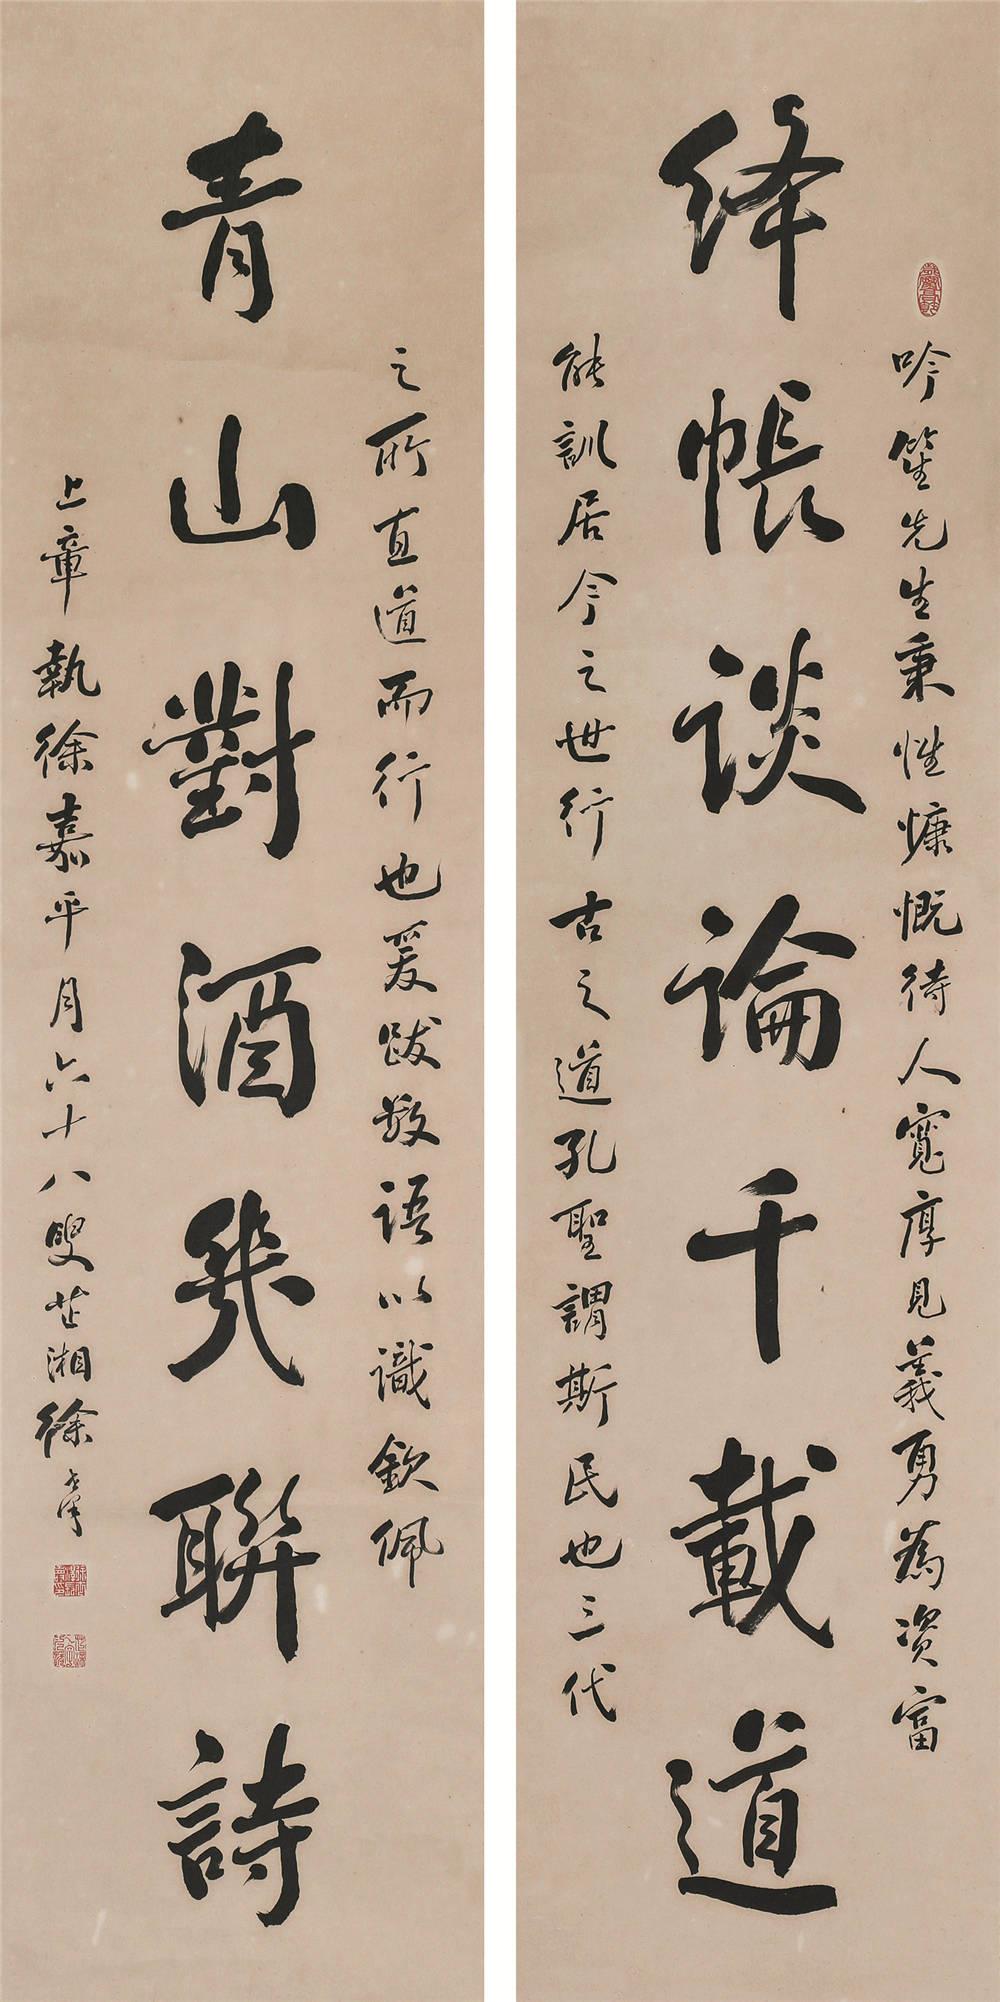 吟笙先生秉性慷慨待人寬厚見義勇為資富
绛帳谈論千載道
能訓居今之世行古之道孔聖謂斯民也三代
之所直道而行也爰跋数語以識欽佩
青山對酒幾聯詩
上章執徐嘉平月六十八叟芷湘徐